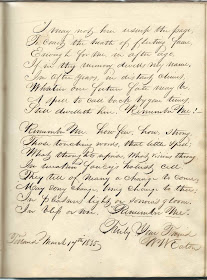 I may not here usurp the page,
To Court the breath of fleeting fame.
Enough for me, in after age,
If in thy memory dwells my name,
In after years, in distant climes,
Whatever our future fate may be.
A spell to call back bygone times
Still dwelleth here. Remember Me!—
Remember Me. how few, how strong
Those touching words, that little spell!
What thoughts upon the
In varation fancy's holiest cell
They tell of many a change to come,
May bring change to thee
In pleasure's light, or sorrow's gloom.
In bliss or woe. Remember Me.
Truly Your Friend
March 17th 1845